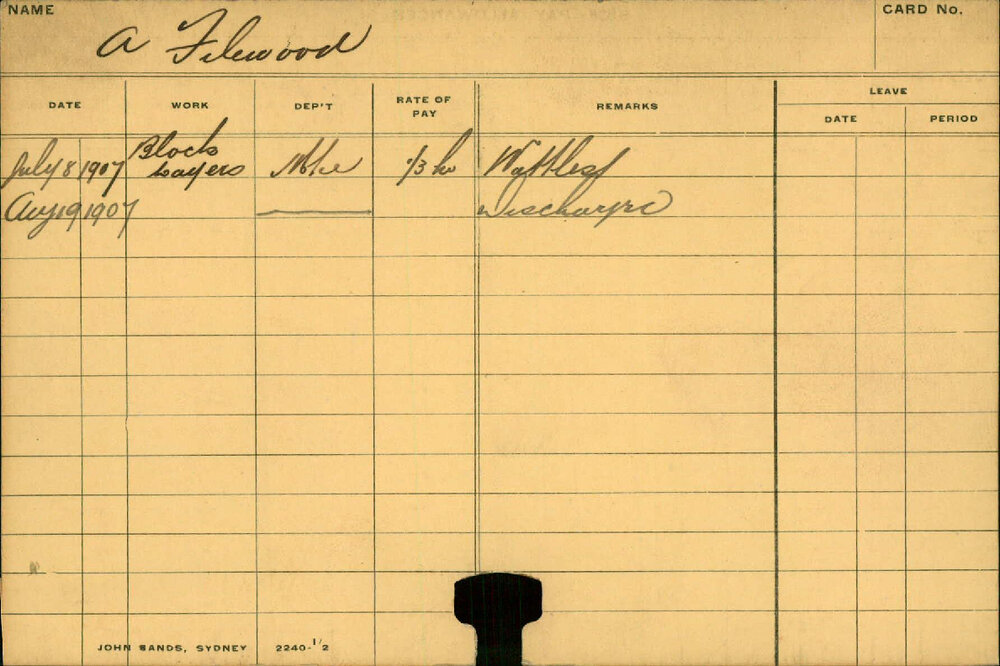 NAME
CARD No.
A Filewood
DATE WORK DEP'T RATE OF PAY REMARKS LEAVE
DATE PERIOD
July 8 1907 Block Layers 1/3 hr
Aug 19 1907 Discharged
JOHN SANDS, SYDNEY 2240-1/2